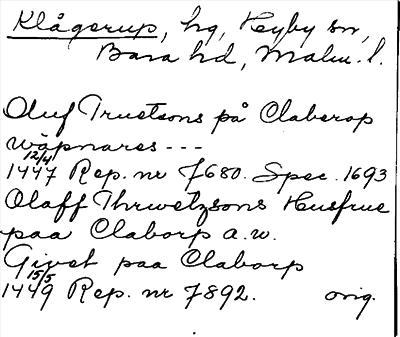 Klågerup, hg, Hyby sn,
Bara hd, Malm. l.
Oluf Truetsons på Claberop
wäpnares ---
12/4
1447 Rep. nr 7680. Spec. 1693
Olaff Thrwetzsons Husfrue
paa Claborp a.w.
Givet paa Claborp
15/5
1449 Rep. nr 7892. orig.